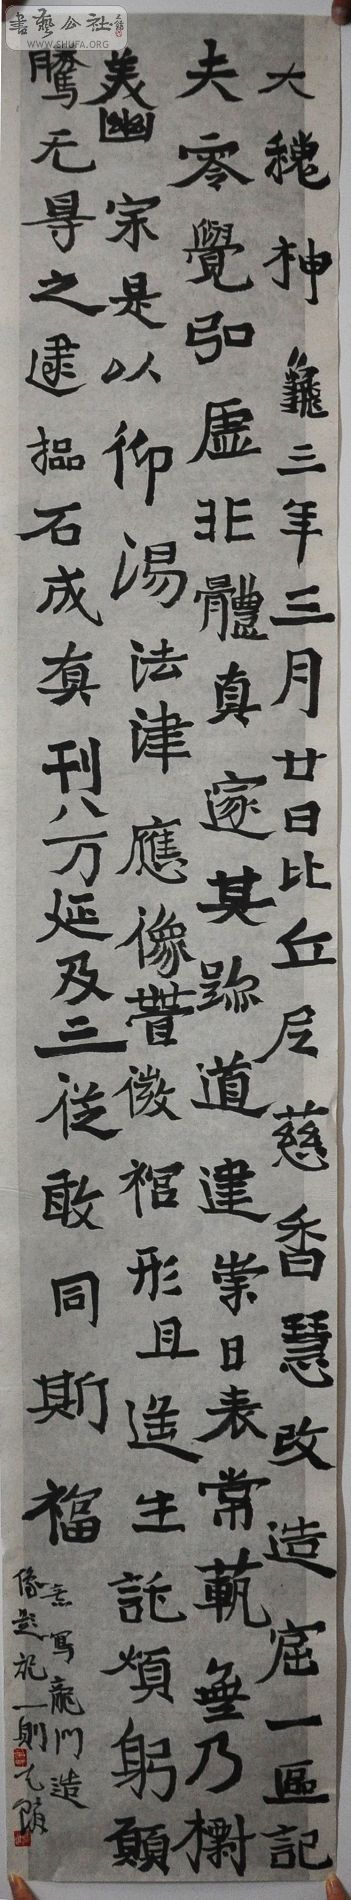 書藝公社
WWW.SHUFA.ORG
大魏神龜三年三月廿日比丘尼慈香慧政造窟一區記
夫零覺弘虛非體真邃其跡道建崇日表常軌無乃標
美幽宗是以仰渴法津應像營微福形且遙生託煩躬願
騰无㝵之逮掘石成真刊八万延及三從敢同斯福
意寫龍門造
像題記一則